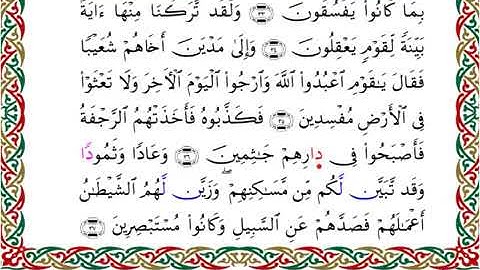 بِمَا كَانُوا۟ يَفْسُقُونَ ٣٤ وَلَقَد تَّرَكْنَا مِنْهَآ ءَايَةًۢ
بَيِّنَةً لِّقَوْمٍ يَعْقِلُونَ ٣٥ وَإِلَىٰ مَدْيَنَ أَخَاهُمْ شُعَيْبًا
فَقَالَ يَـٰقَوْمِ ٱعْبُدُوا۟ ٱللَّهَ وَٱرْجُوا۟ ٱلْيَوْمَ ٱلْـَٔاخِرَ وَلَا تَعْثَوْا۟
فِى ٱلْأَرْضِ مُفْسِدِينَ ٣٦ فَكَذَّبُوهُ فَأَخَذَتْهُمُ ٱلرَّجْفَةُ
فَأَصْبَحُوا۟ فِى دَارِهِمْ جَـٰثِمِينَ ٣٧ وَعَادًا وَثَمُودًا
وَقَد تَّبَيَّنَ لَكُم مِّن مَّسَـٰكِنِهِمْ ۖ وَزَيَّنَ لَهُمُ ٱلشَّيْطَـٰنُ
أَعْمَـٰلَهُمْ فَصَدَّهُمْ عَنِ ٱلسَّبِيلِ وَكَانُوا۟ مُسْتَبْصِرِينَ